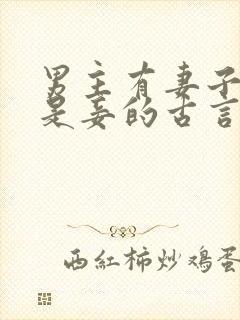 男主有妻子
是妾的古言
西紅柿炒鸡蛋